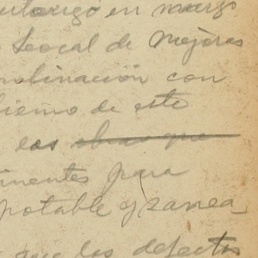 autorizó en marzo
Local de Mejoras
ombinación con
bierno de este
las obras que
inentes para
potable y sanea
que los defectos